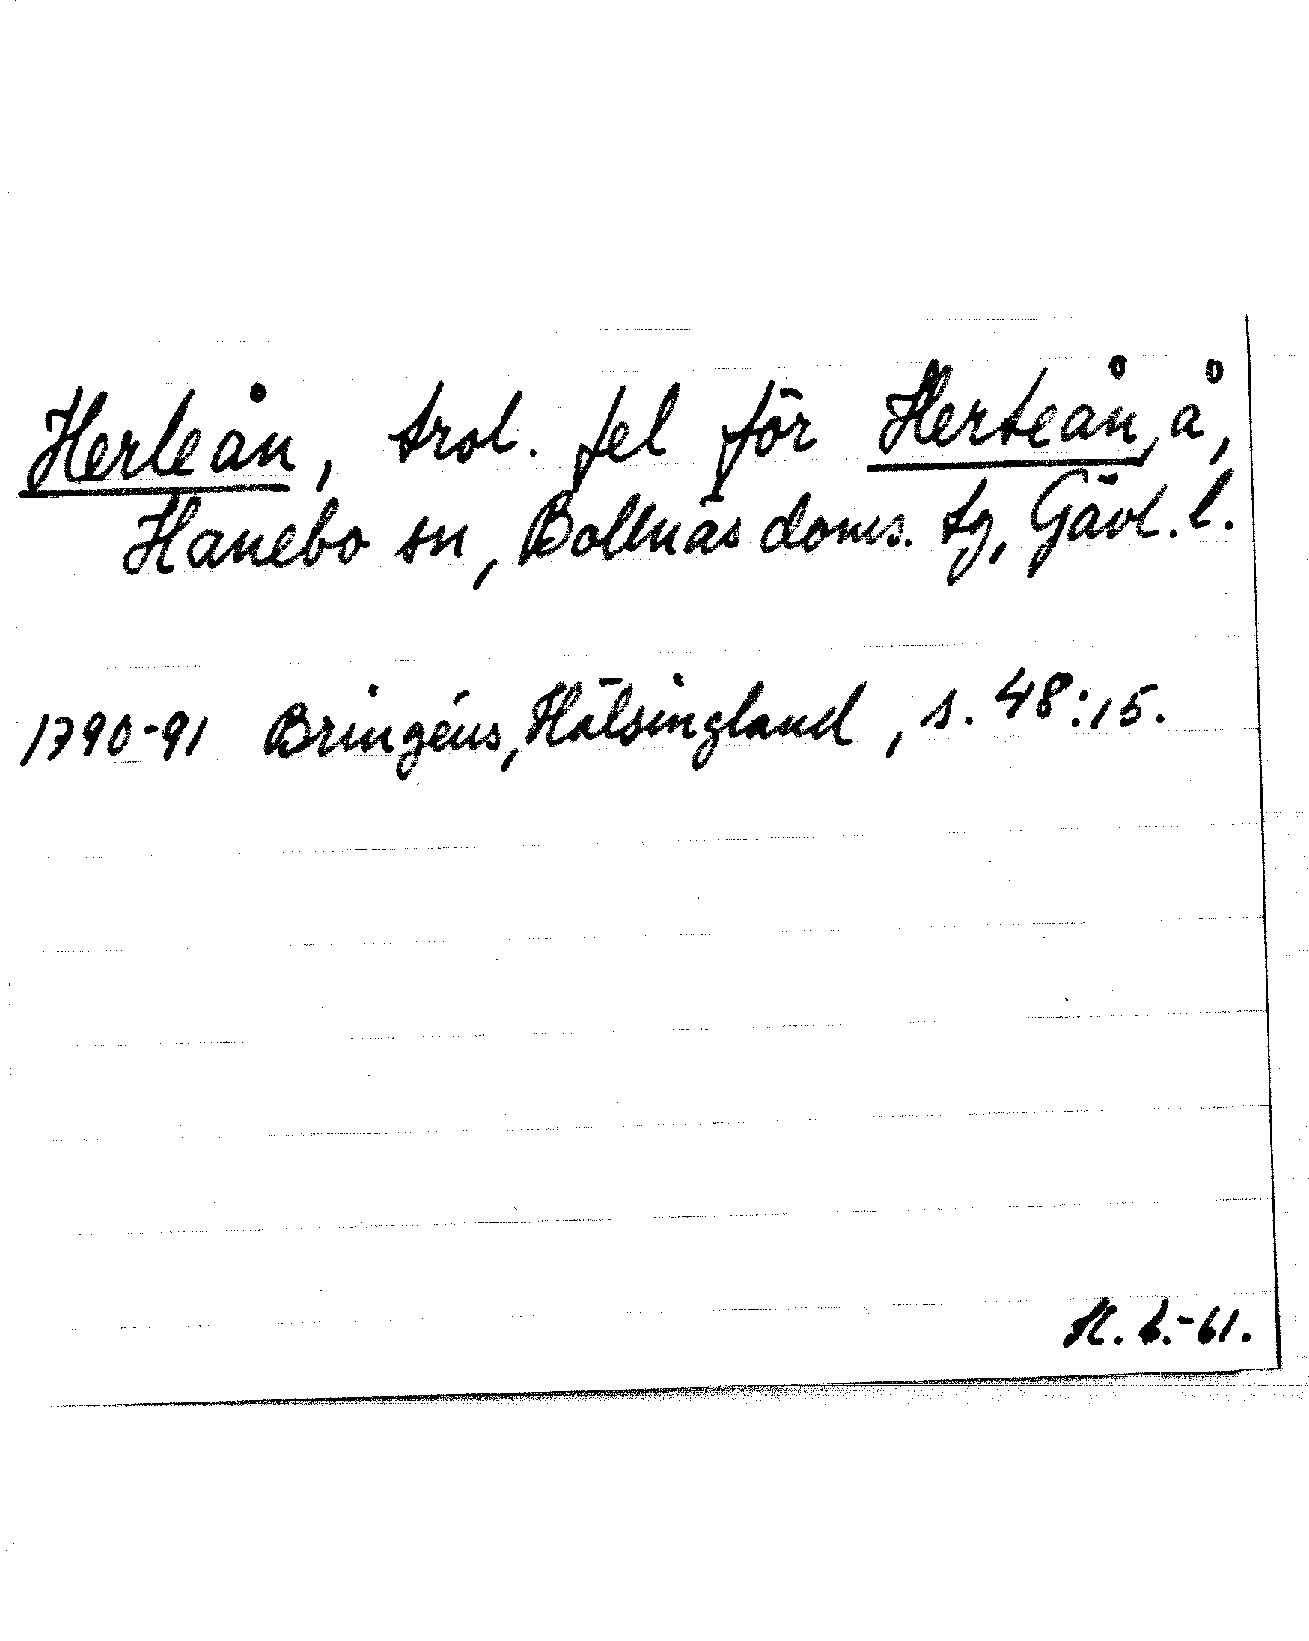 Herleån, trol. fel för Herteån, å,
Hanebo sn, Bollnäs doms. tg, Gävl. l.
1790-91 Bringéus, Hälsingland, s. 48:15.
-61.